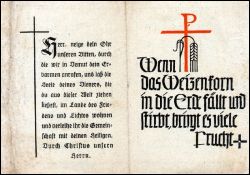 Herr, neige dein Ohr
unseren Bitten, durch
die wir in Demut dein Er-
barmen anrufen, und laß die
Seele deines Dieners, die
du aus dieser Welt ziehen
ließest, im Lande des Frie-
dens und Lichtes wohnen
und verleihe ihr die Gemein-
schaft mit deinen Heiligen.
Durch Christus unsern
Herrn.
Wenn
das Weizenkorn
in die Erde fällt und
stirbt, bringt es viele
Frucht